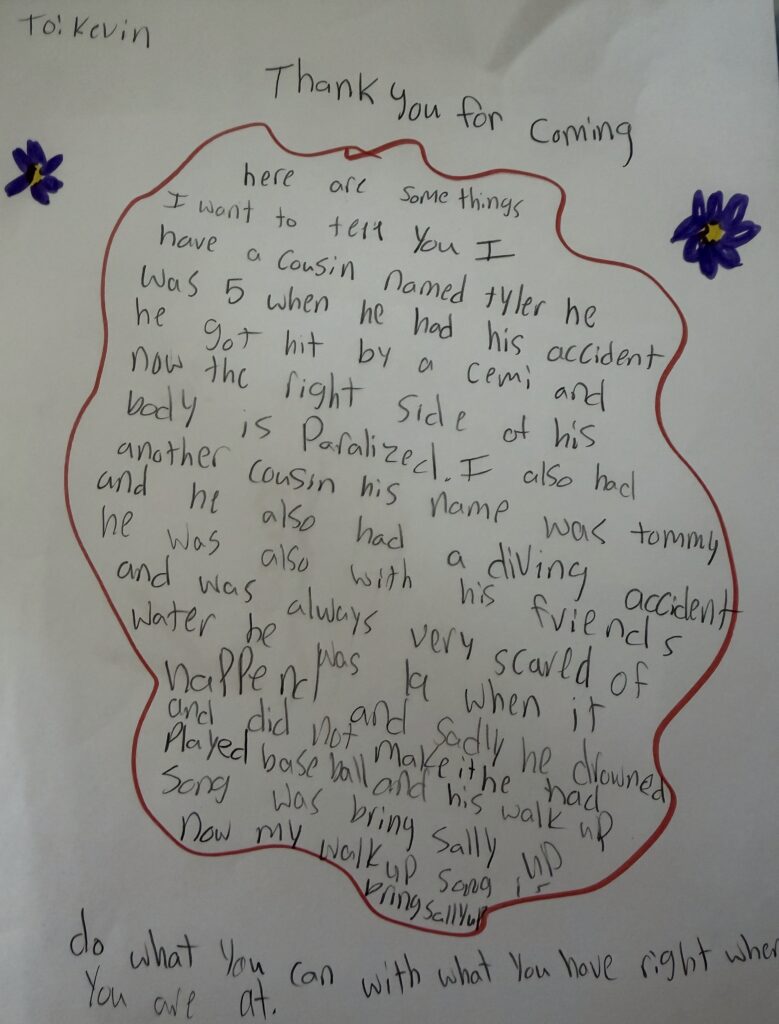 To: Kevin
Thank you for coming
here are some things
I want to tell you I
have a cousin named tyler he
was 5 when he had his accident
he got hit by a cemi and
now the right side of his
body is Paralized. I also had
another cousin his name was tommy
and he also had a diving accident
he was also with his friends
and was always very scared of
water he was 19 when it
happend and sadly he drowned
and did not make it he had
Played baseball and his walk up
song was bring sally up
now my walk up song is
bring sally up
do what you can with what you have right wher
You are at.